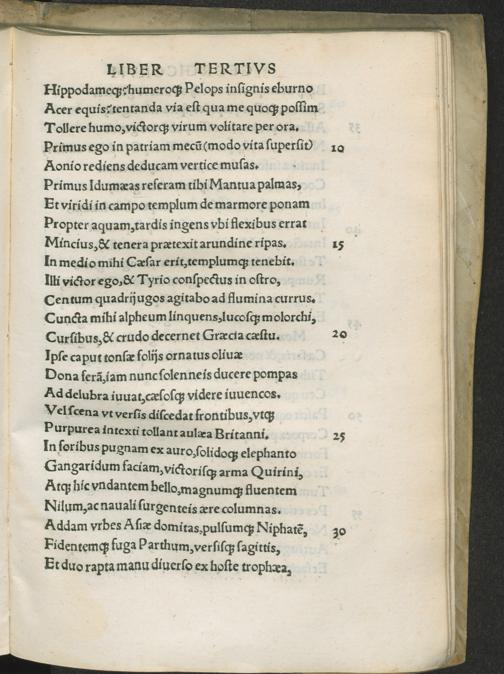 LIBER TERTIVS
Hippodameqꝫ: humeroqꝫ Pelops insignis eburno
Acer equis: tentanda via est qua me quoqꝫ possim
Tollere humo, victorqꝫ virum volitare per ora.
Primus ego in patriam mecū (modo vita supersit) 10
Aonio rediens deducam vertice musas.
Primus Idumæas referam tibi Mantua palmas,
Et viridi in campo templum de marmore ponam
Propter aquam, tardis ingens vbi flexibus errat
Mincius, & tenera prætexit arundine ripas. 15
In medio mihi Cæsar erit, templumqꝫ tenebit.
Illi victor ego, & Tyrio conspectus in ostro,
Centum quadrijugos agitabo ad flumina currus.
Cuncta mihi alpheum linquens, lucosqꝫ molorchi,
Cursibus, & crudo decernet Græcia cæstu. 20
Ipse caput tonsæ folijs ornatus oliuæ
Dona ferā, iam nunc solenneis ducere pompas
Ad delubra iuuat, cæsosqꝫ videre iuuencos.
Vel scena vt versis discedat frontibus, vtqꝫ
Purpurea intexti tollant aulæa Britanni. 25
In foribus pugnam ex auro, solidoqꝫ elephanto
Gangaridum faciam, victorisqꝫ arma Quirini,
Atqꝫ hic vndantem bello, magnumqꝫ fluentem
Nilum, ac nauali surgenteis ære columnas.
Addam vrbes Asiæ domitas, pulsumqꝫ Niphatē, 30
Fidentemqꝫ fuga Parthum, versisqꝫ sagittis,
Et duo rapta manu diuerso ex hoste trophæa,